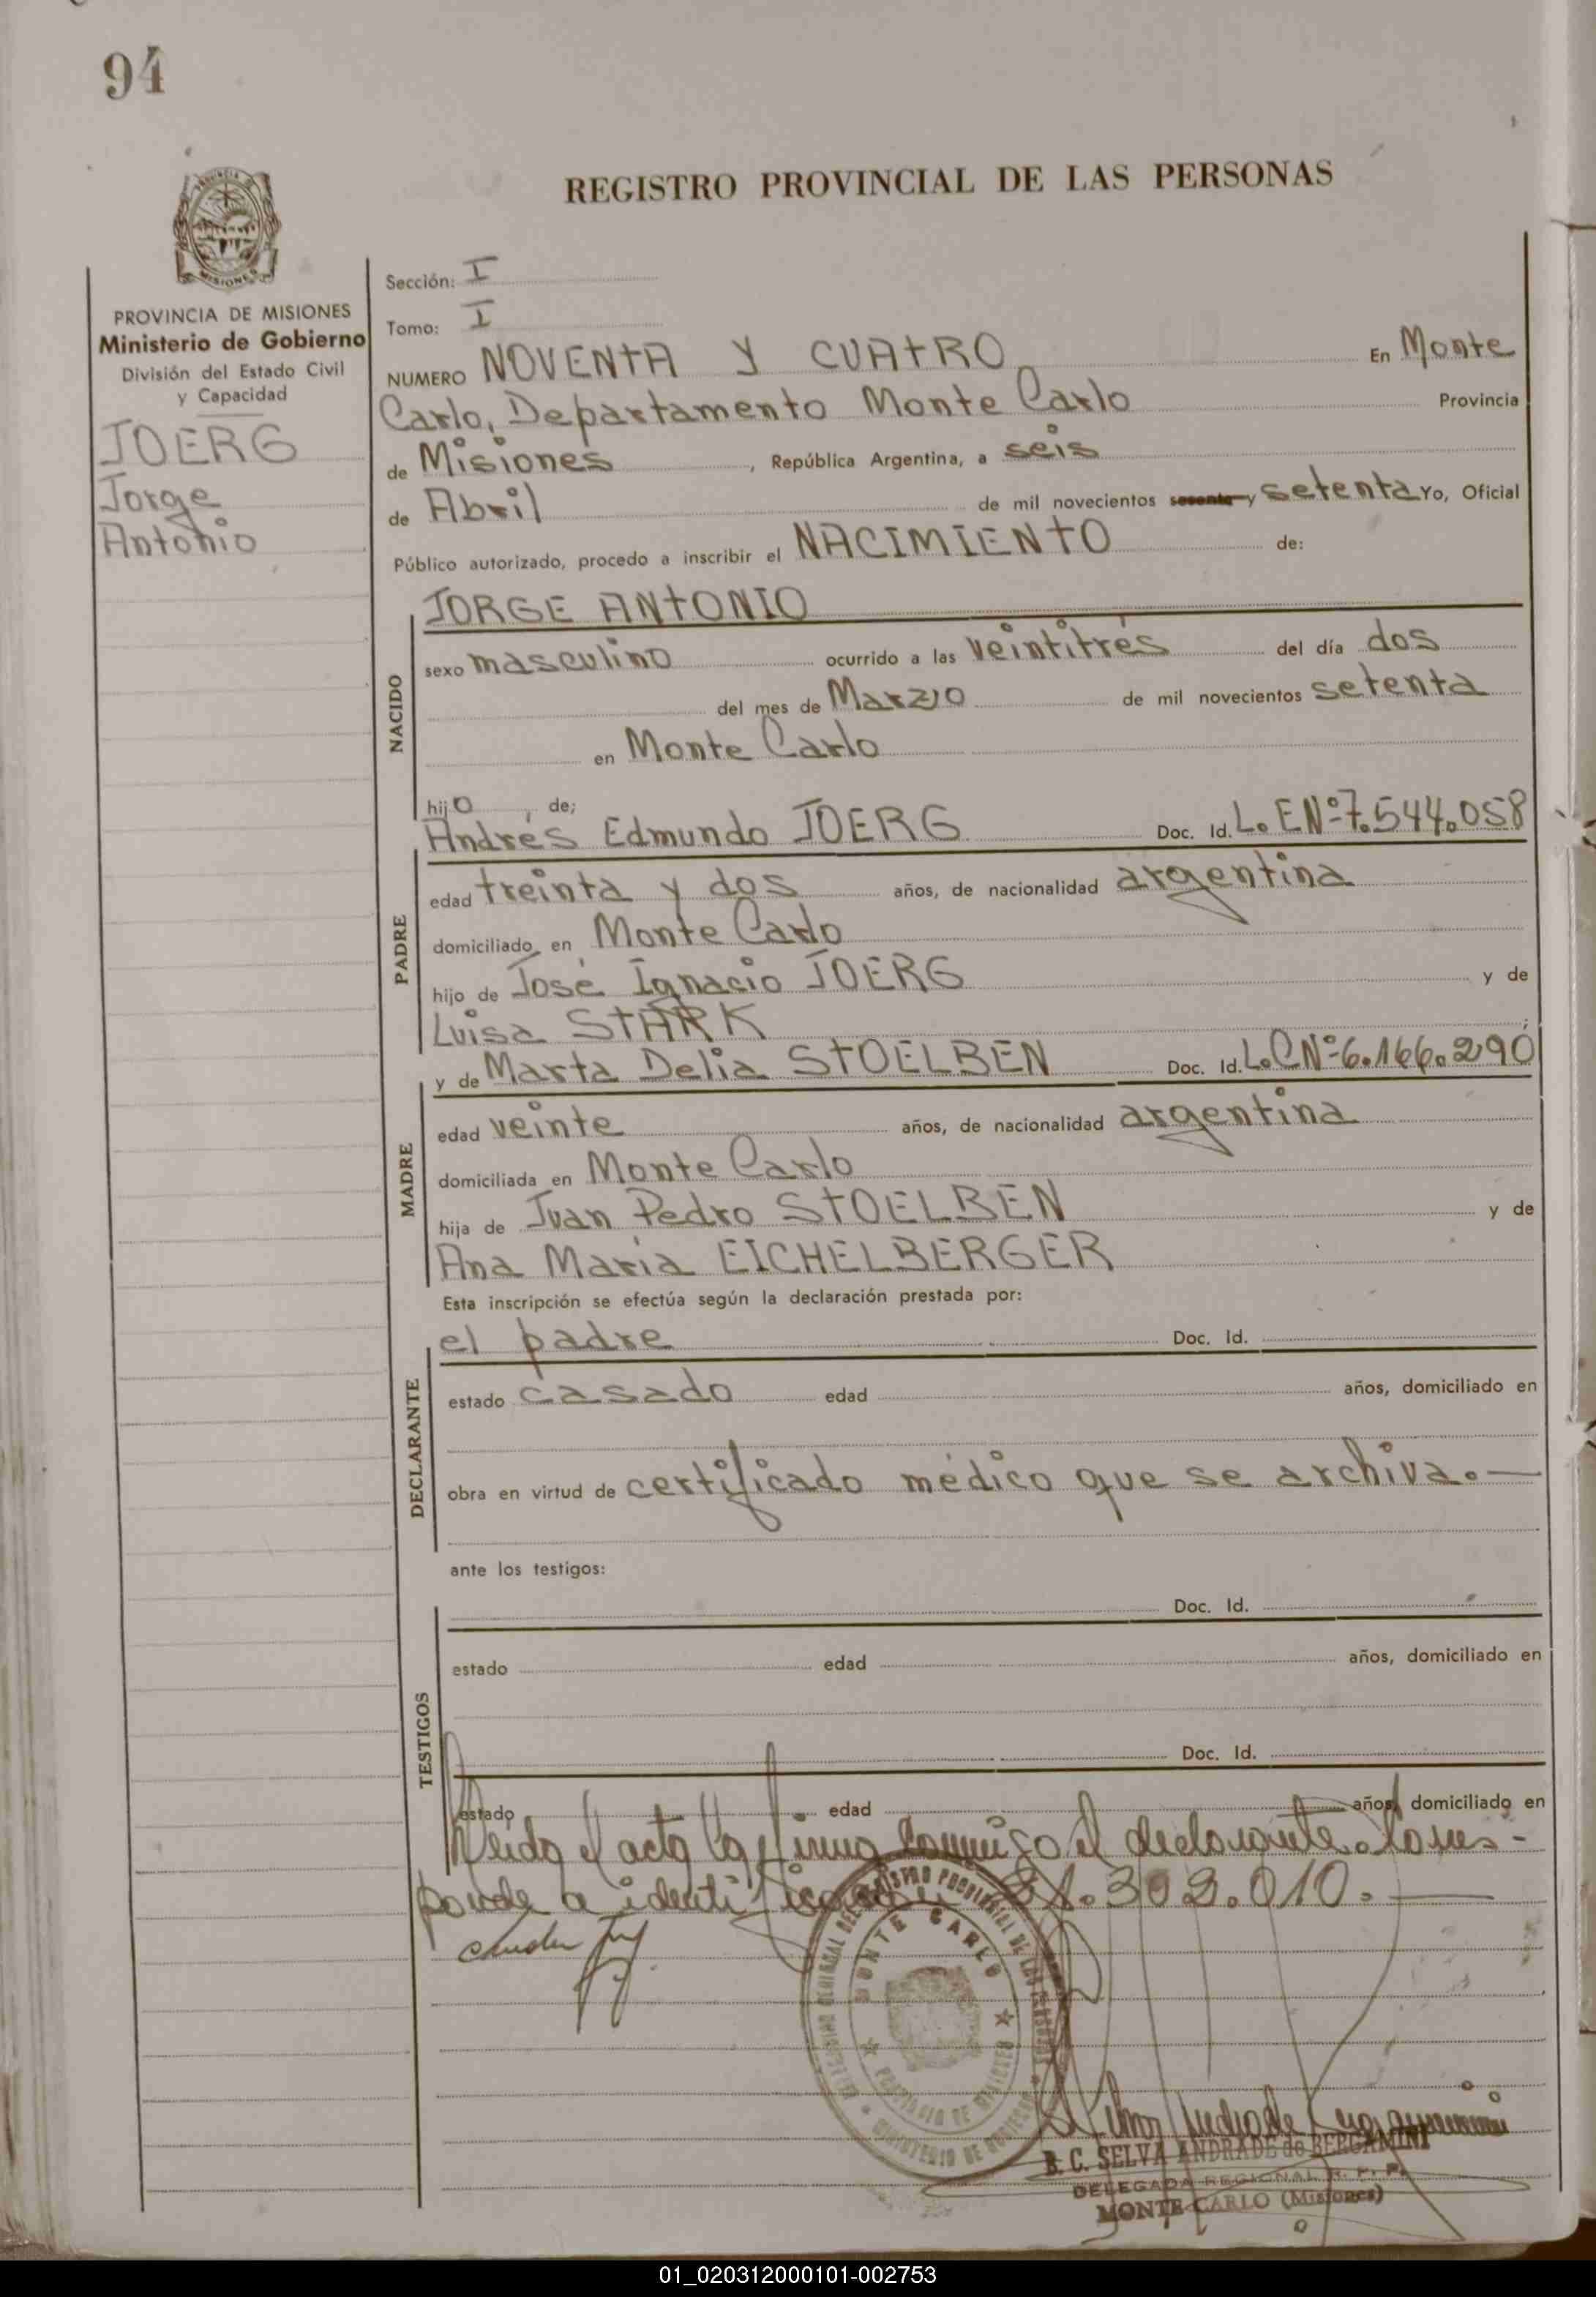 94
REGISTRO PROVINCIAL DE LAS PERSONAS
MISIONES
PROVINCIA DE MISIONES
Ministerio de Gobierno
División del Estado Civil
y Capacidad
JOERG
Jorge
Antonio
Sección: I
Tomo: I
NUMERO NOVENTA Y CUATRO En Monte
Carlo, Departamento Monte Carlo Provincia
de Misiones, República Argentina, a seis
de Abril de mil novecientos sesenta y setenta Yo, Oficial
Público autorizado, procedo a inscribir el NACIMIENTO de:
NACIDO
JORGE ANTONIO
sexo masculino ocurrido a las veintitrés del día dos
del mes de Marzo de mil novecientos setenta
en Monte Carlo
hijo, de;
PADRE
Andrés Edmundo JOERG Doc. Id. L. E Nº 7.544.058
edad treinta y dos años, de nacionalidad argentina
domiciliado en Monte Carlo
hijo de José Ignacio JOERG y de
Luisa STARK;
MADRE
y de Marta Delia STOELBEN Doc. Id. L. C Nº 6.166.290
edad veinte años, de nacionalidad argentina
domiciliada en Monte Carlo
hija de Juan Pedro STOELBEN y de
Ana María EICHELBERGER
Esta inscripción se efectúa según la declaración prestada por:
DECLARANTE
el padre Doc. Id.
estado casado edad años, domiciliado en
obra en virtud de certificado médico que se archiva.—
ante los testigos:
TESTIGOS
Doc. Id.
estado edad años, domiciliado en
Doc. Id.
estado edad años, domiciliado en
Leida el acta la firma conmigo el declarante. Corres-
ponde a identificación 21.302.010.—
MONTE CARLO
PROVINCIA DE MISIONES
MINISTERIO DE GOBIERNO
B. C. SELVA ANDRADE de BERGAMINI
DELEGADA REGIONAL R. P. P.
MONTE CARLO (Misiones)
01_020312000101-002753